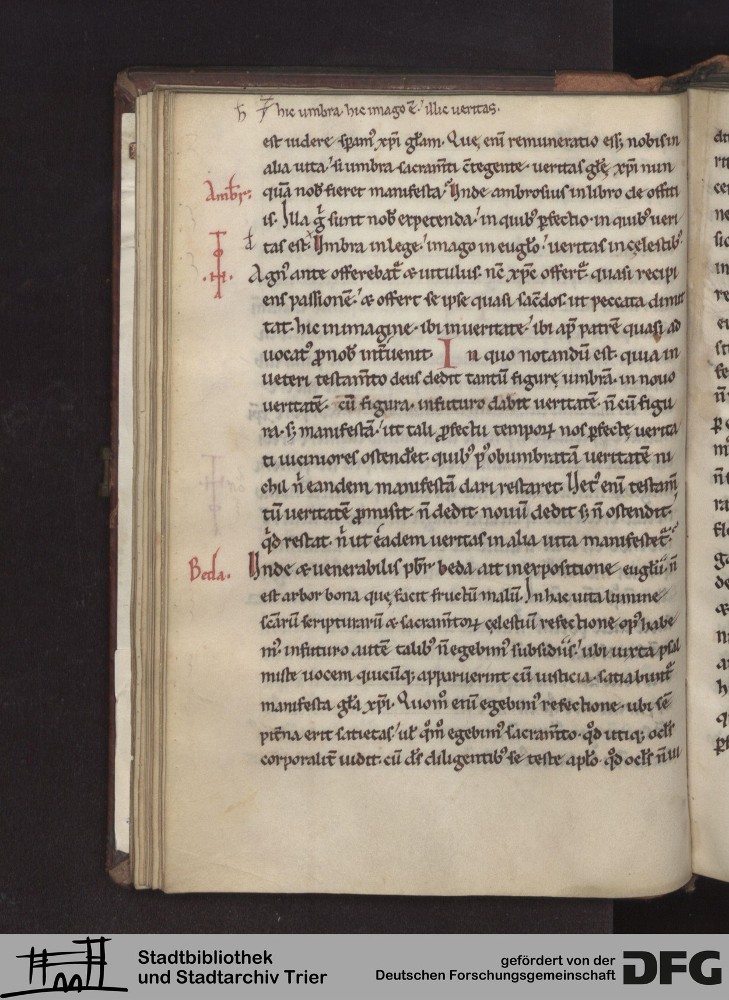 ħ hic umbra · hic imago ē · illic ueritas ·
est uidere ip̄am xp̄i gl̄am. Que, eni remuneratio eis, nobis in
alia uita si umbra sacram̄ti c̄tegente ueritas glę xp̄i nun
quā nob fieret manifesta. Unde ambrosius in libro de offiti
Ambr̄:
is. Illa g̊ sunt nob expetenda, in quib; pfectio · in quib; ueri
tas est. Umbra in lege, imago in euglo, ueritas in cęlestib;
Agn; ante offerebat̄ & uitulus. nc̄ xp̄c offert̄ quasi recipi
ens passionē, & offert se ipse quasi sac̄dos. ut peccata dimit
tat. hic in imagine. ibi in ueritate, ibi ap̄ patrē quasi ad
uocat; ꝓ nob int̄uenit. In quo notandū est. quia in
ueteri testam̄to deus dedit tantū figurę umbrā. in nouo
ueritatē. cū figura. in futuro dabit ueritatē. n̄ cū figu
ra. s; manifestā, ut tali ꝓfectu temporꝝ nos ꝑfectę uerita
ti uiciniores ostenderet. quib; p; obumbratā ueritatē ni
chil n̄ eandem manifestā dari restaret. Uet; enī testam̄
tū ueritatē ꝓmisit. n̄ dedit. nouū dedit s; n̄ ostendit.
qd restat. n̄ ut eadem ueritas in alia uita manifestet̄.
Beda.
Unde & uenerabilis pb̄r beda ait in expositione euglii. n̄
est arbor bona que, facit fructū malū. In hac uita lumine
sc̄arū scripturarū & sacram̄torꝝ cęlestiū refectione op; habe
m; in futuro autē talib; n̄ egebim; subsidiis, ubi iuxta psal
miste uocem quicūq; apparuerint cū iusticia. satiabunt̄
manifesta gl̄a xp̄i. Quom̄ enī egebim; refectione. ubi sē
pit̄na erit satietas, ul qm̄ egebim; sacram̄to. qd utiq; ocl̄s
corporalit̄ uidit. cū d̄s diligentib; se teste aplo. qd ocl̄s n̄ ui
Stadtbibliothek
und Stadtarchiv Trier
gefördert von der
Deutschen Forschungsgemeinschaft
DFG